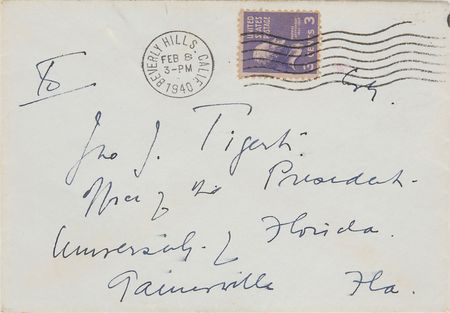 BEVERLY HILLS, CALIF.
FEB 8
3-PM
1940
UNITED STATES POSTAGE
3 CENTS 3
To
Esq.
Jno J. Tigert.
Office of the President.
University of Florida.
Gainesville Fla.